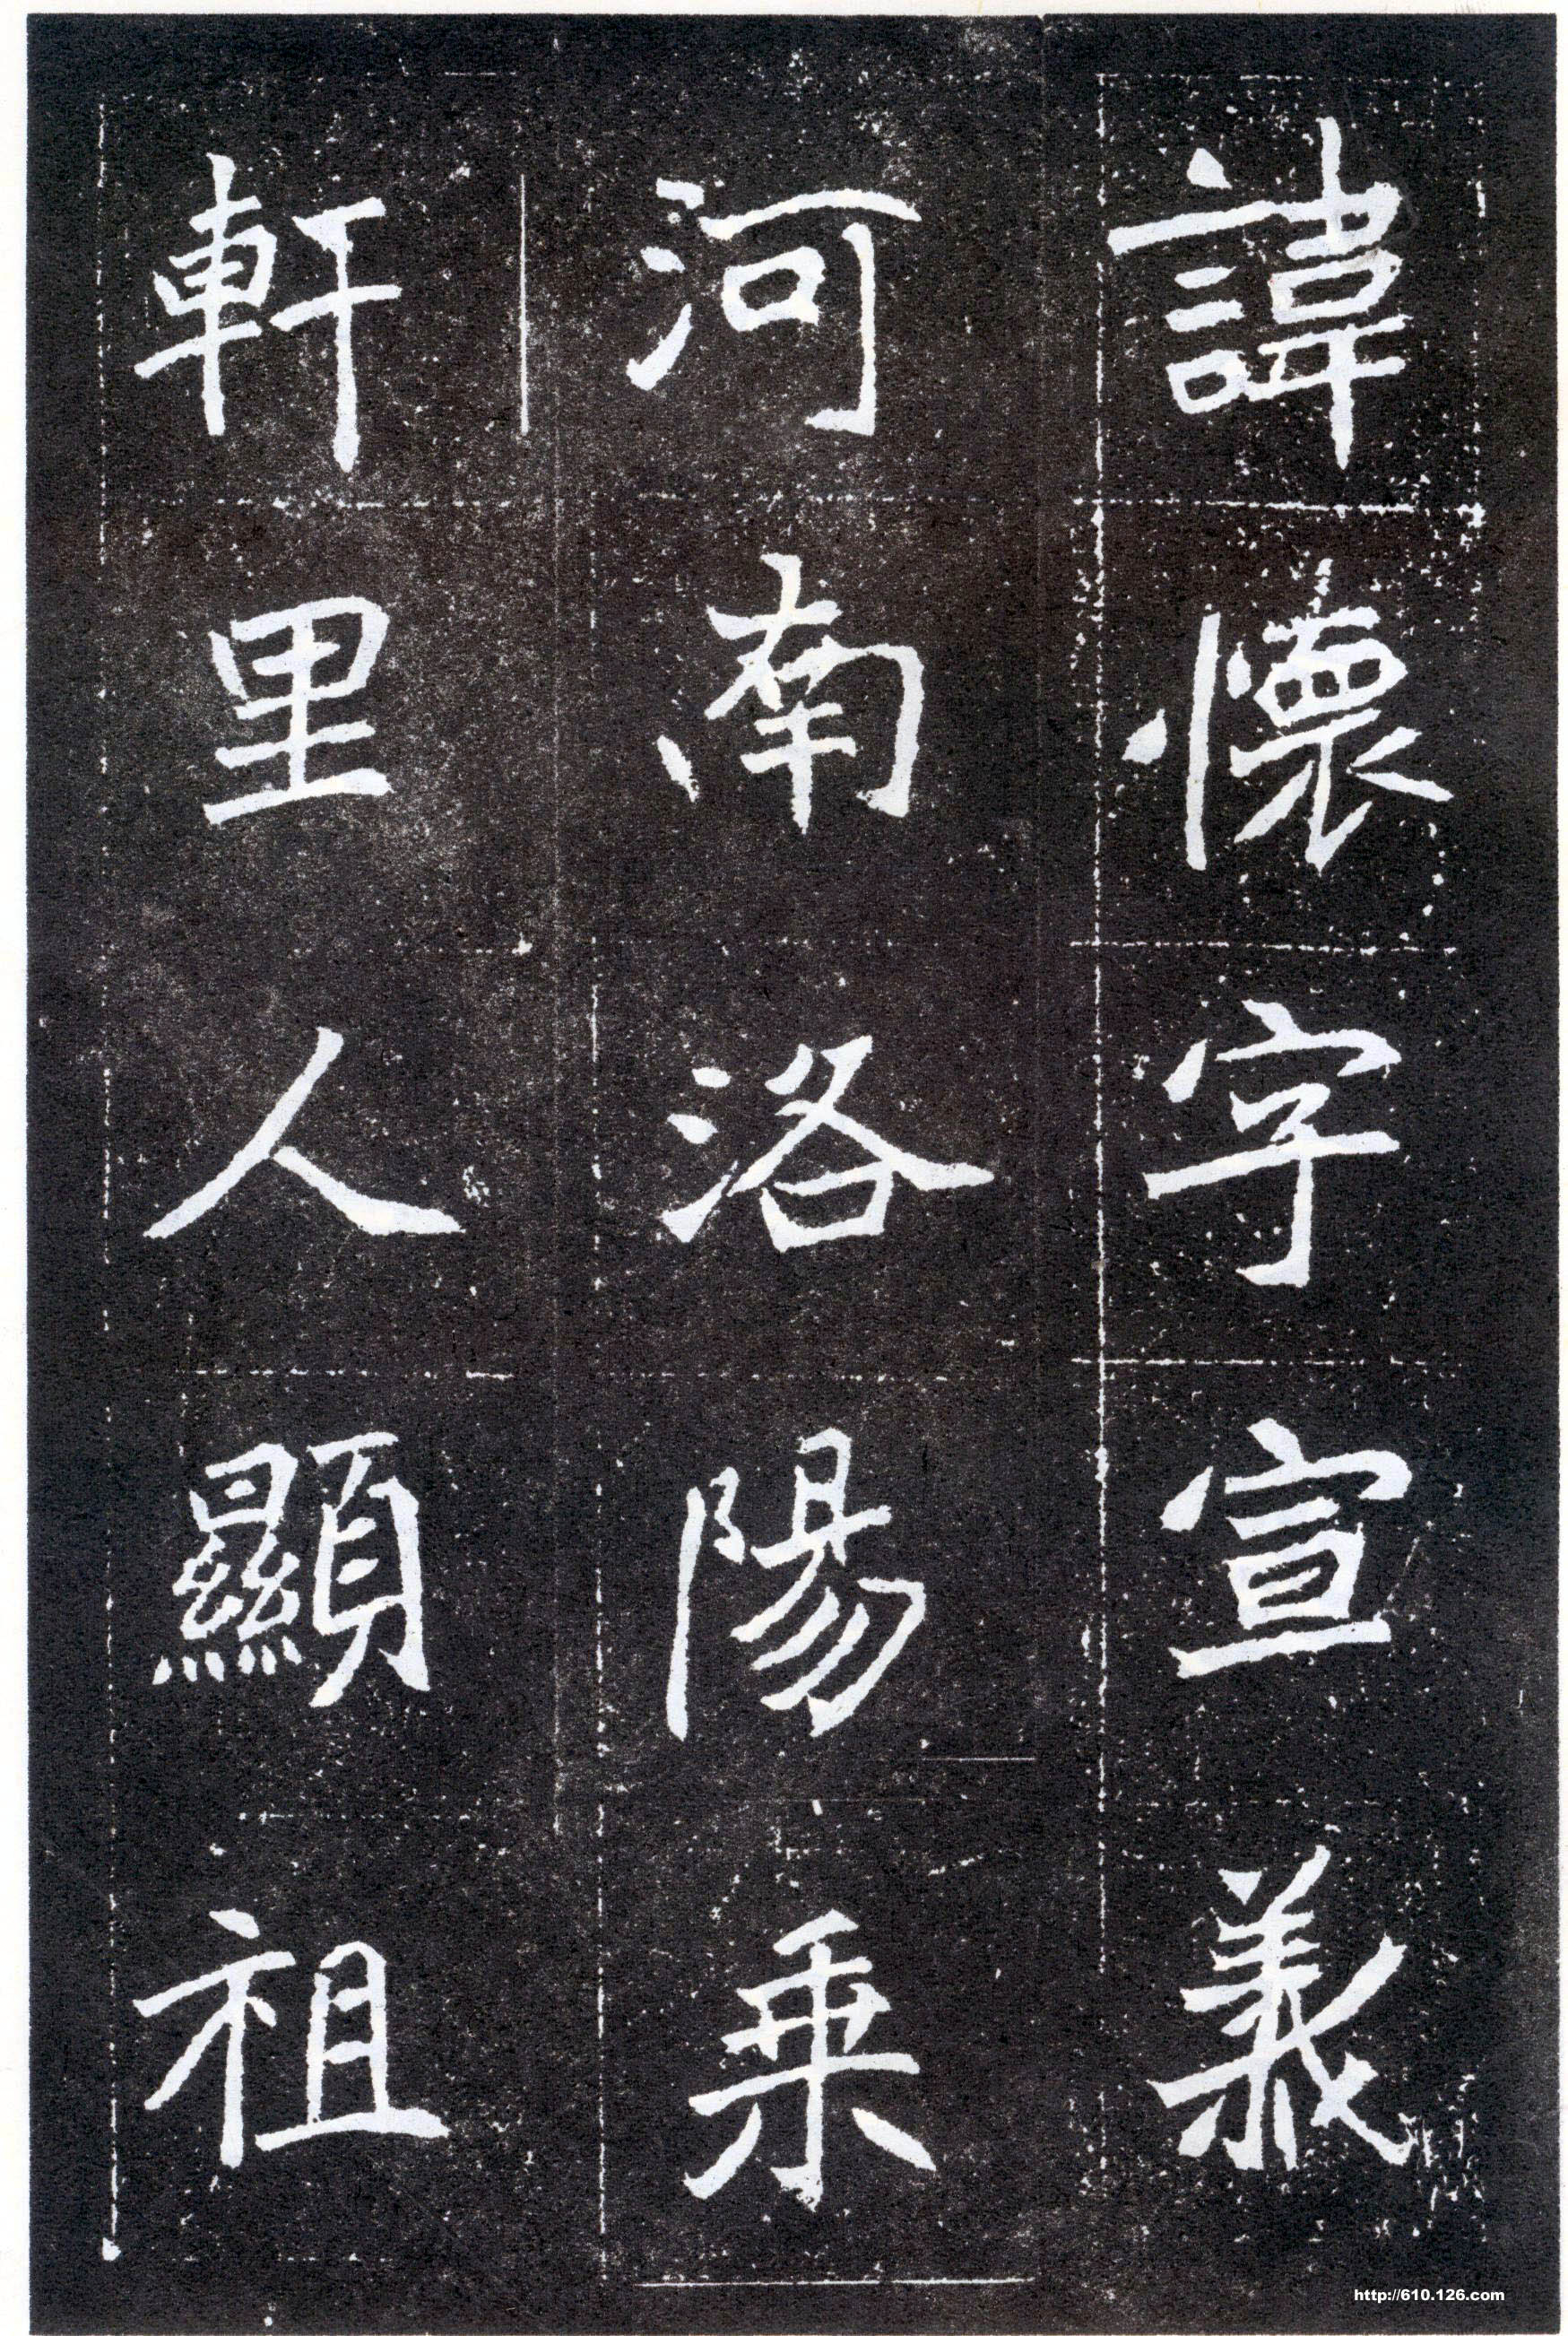 諱懷字宣義
河南洛陽乗
軒里人顯祖
http://610.126.com